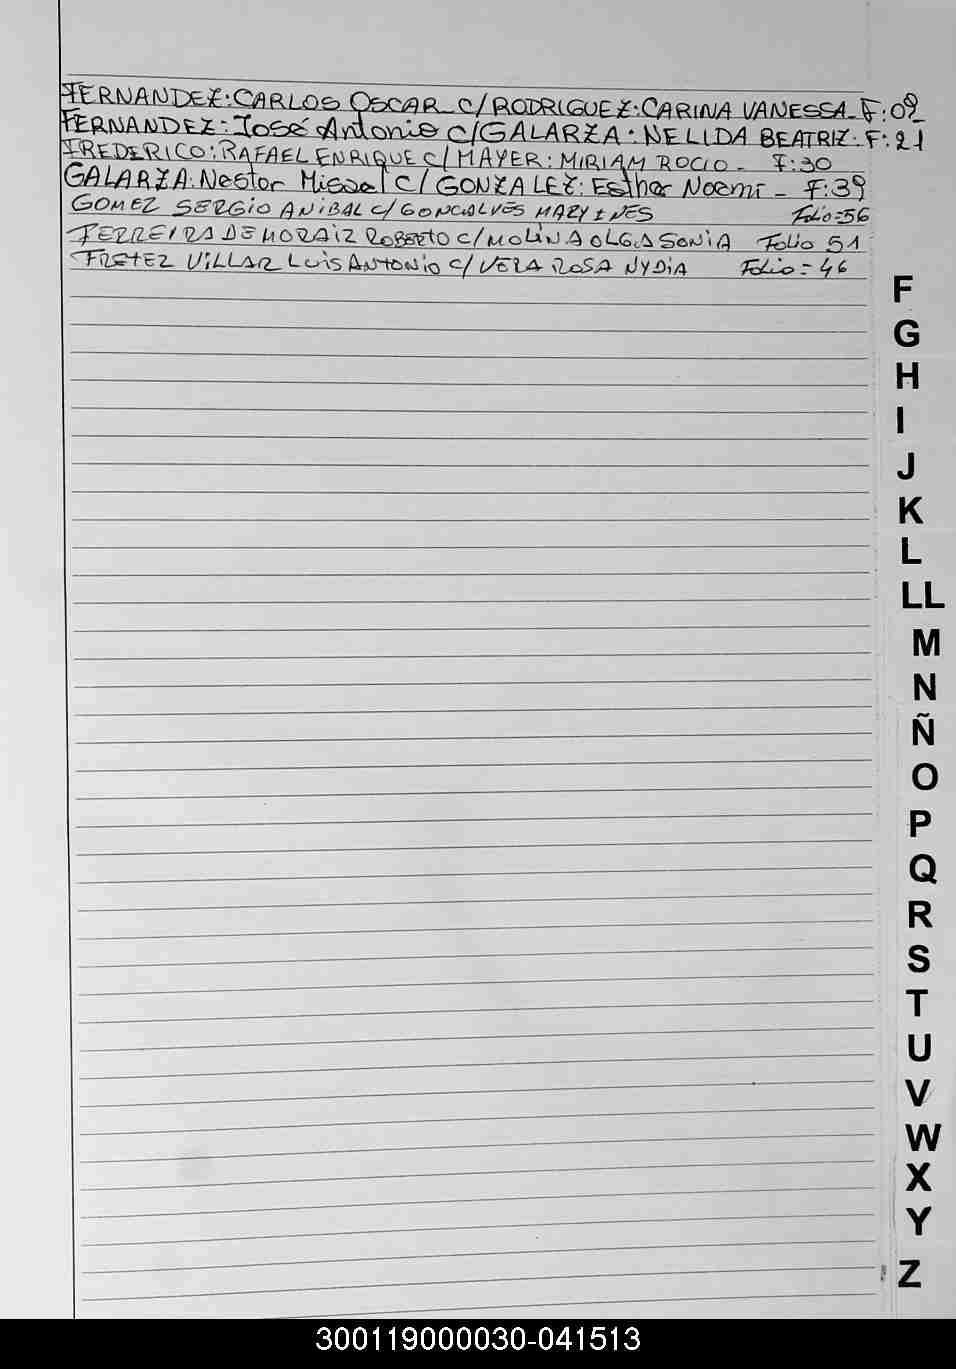 FERNANDEZ: CARLOS OSCAR C/ RODRIGUEZ: CARINA VANESSA - F: 09
FERNANDEZ: José Antonio C/ GALARZA: NELIDA BEATRIZ: F: 21
FREDERICO: RAFAEL ENRIQUE C/ MAYER: MIRIAM ROCIO - F: 30
GALARZA: Nestor Misael C/ GONZALEZ: Esther Noemi - F: 39
GOMEZ SERGIO ANIBAL C/ GONCALVES MARY INES Folio=56
FERREIRA DE MORAIZ ROBERTO C/ MOLINA OLGA SONIA Folio 51
FRETEZ VILLAR LUIS ANTONIO C/ VERA ROSA NYDIA Folio=46
F
G
H
I
J
K
L
LL
M
N
Ñ
O
P
Q
R
S
T
U
V
W
X
Y
Z
300119000030-041513